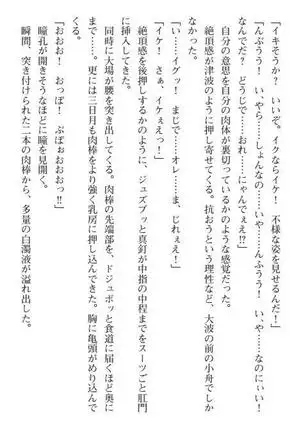 「イキそうか？　いいぞ。イクならイケ！　不様な姿を見せるんだ！」
「んぶうう！　い、やら……しょんなの……いや……んふうう！　い、や……なのにぃい！
なんでだ？　どうじで……おれ……にゃんでぇえ!?」
　自分の意思を自分の肉体が裏切っているかのような感覚だった。
　絶頂感が津波のように押し寄せてくる。抗おうという理性など、大波の前の小舟でしか
なかった。
「い……イグッ！　まじで……オレ……ま、じれぇえ！」
「イケ！　さぁ、イケぇえっ！」
　絶頂感を後押しするかのように、ジュズブッと真釘が中指の中程までをスーツごと肛門
に挿入してきた。
　同時に大場が腰を突き出してくる。肉棒の先端部を、ドジュボッと食道に届くほど奥に
まで……。更には三日月も肉棒をより強く乳房に押し込んできた。胸に亀頭がめり込んで
くる。
「おおお！　おっぼ！　ぶぼぉおおおっ!!」
　瞳孔が開きそうなほどに瞳を見開く。
　瞬間、突き付けられた二本の肉棒から、多量の白濁液が溢れ出した。